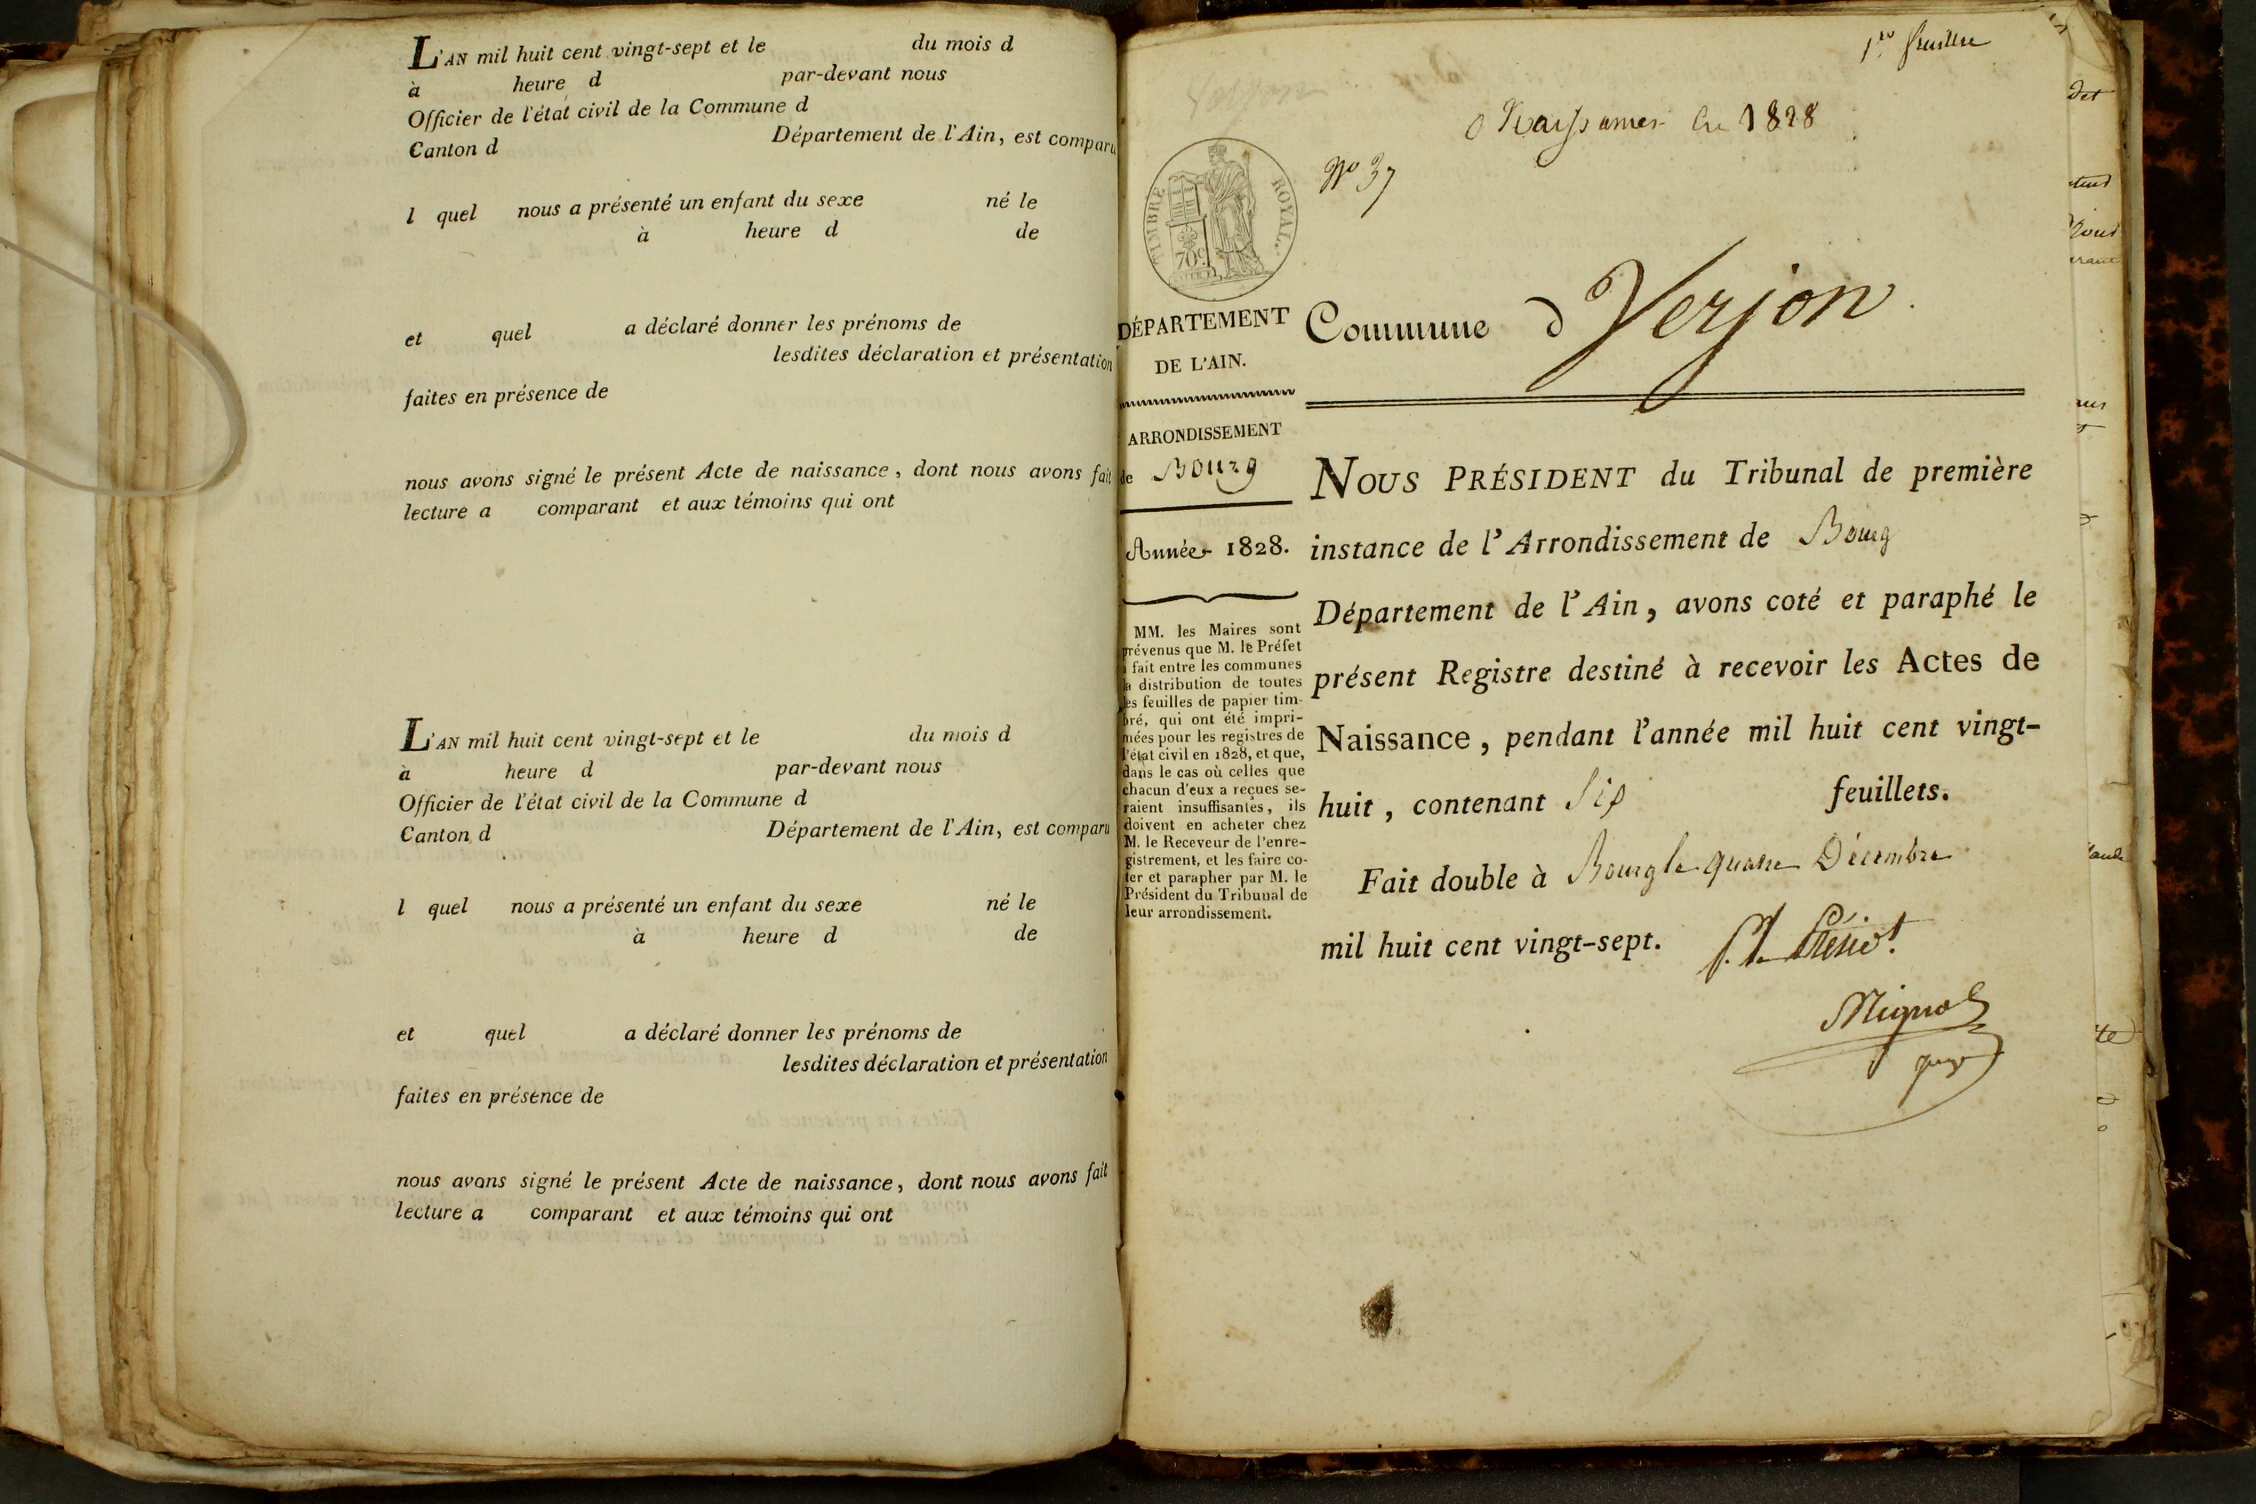 L'AN mil huit cent vingt-sept et le du mois d
à heure d par-devant nous
Officier de l'état civil de la Commune d
Canton d Département de l'Ain, est comparu
l quel nous a présenté un enfant du sexe né le
à heure d de
et quel a déclaré donner les prénoms de
lesdites déclaration et présentation
faites en présence de
nous avons signé le présent Acte de naissance, dont nous avons fait
lecture a comparant et aux témoins qui ont
L'AN mil huit cent vingt-sept et le du mois d
à heure d par-devant nous
Officier de l'état civil de la Commune d
Canton d Département de l'Ain, est comparu
l quel nous a présenté un enfant du sexe né le
à heure d de
et quel a déclaré donner les prénoms de
lesdites déclaration et présentation
faites en présence de
nous avons signé le présent Acte de naissance, dont nous avons fait
lecture a comparant et aux témoins qui ont
1828
No 37
TIMBRE ROYAL
70c
DÉPARTEMENT
DE L'AIN.
ARRONDISSEMENT
de Bourg
Année 1828.
MM. les Maires sont
prévenus que M. le Préfet
a fait entre les communes
la distribution de toutes
les feuilles de papier tim-
bré, qui ont été impri-
mées pour les registres de
l'état civil en 1828, et que,
dans le cas où celles que
chacun d'eux a reçues se-
raient insuffisantes, ils
doivent en acheter chez
M. le Receveur de l'enre-
gistrement, et les faire co-
ter et parapher par M. le
Président du Tribunal de
leur arrondissement.
Commune d Verjon
NOUS PRÉSIDENT du Tribunal de première
instance de l'Arrondissement de Bourg
Département de l'Ain, avons coté et paraphé le
présent Registre destiné à recevoir les Actes de
Naissance, pendant l'année mil huit cent vingt-
huit, contenant Six feuillets.
Fait double à Bourg le quatre Décembre
mil huit cent vingt-sept. P. le Présidt.
juge